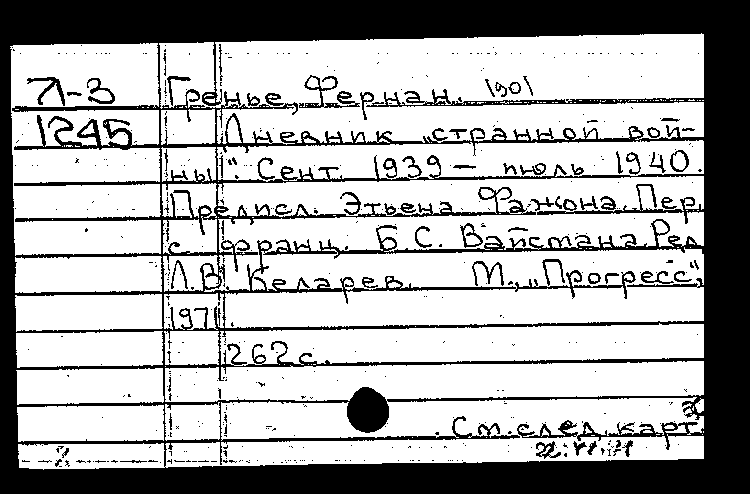 Л-3 Гренье, Фернан. 1901
1245 Дневник „странной вой-
ны". Сент. 1939 – июль 1940.
Предисл. Этьена Фажона. Пер.
с франц. Б.С. Вайсмана. Ред.
Л.В. Келарев. М., „Прогресс",
1971.
262 с.
См. след. карт.